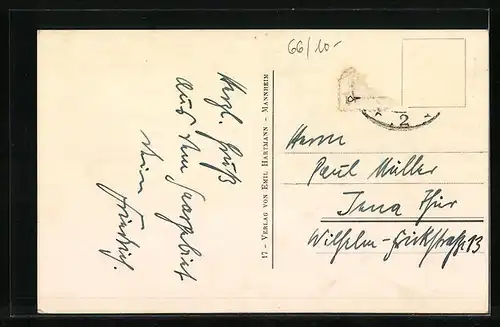 66/10-
Herzl. Gruß
aus dem Saargebiet
dein
Friedrich.
17 - VERLAG VON EMIL HARTMANN - MANNHEIM
* 2 *
Herrn
Paul Müller
Jena Thür
Wilhelm-Frickstraße 13